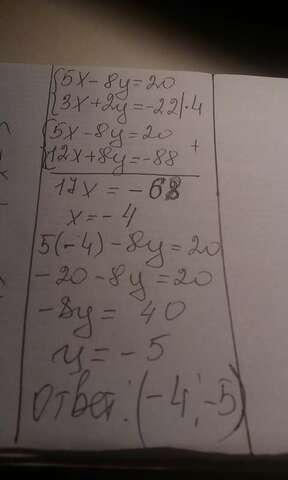 {5x-8y=20
{3x+2y=-22|·4
{5x-8y=20
{12x+8y=-88 +
17x=-68
x=-4
5(-4)-8y=20
-20-8y=20
-8y= 40
y=-5
Ответ: (-4;-5)